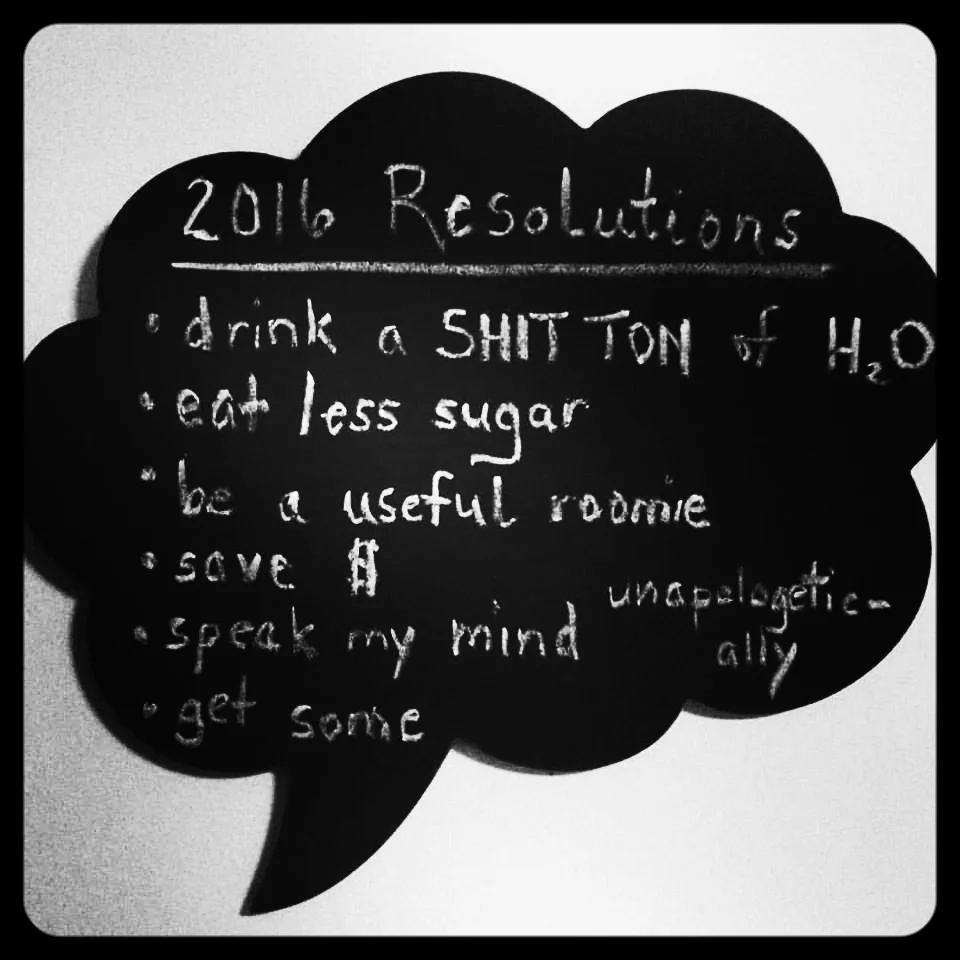 2016 Resolutions
• drink a SHIT TON of H₂O
• eat less sugar
• be a useful roomie
• save $
• speak my mind unapologetic-
ally
• get some